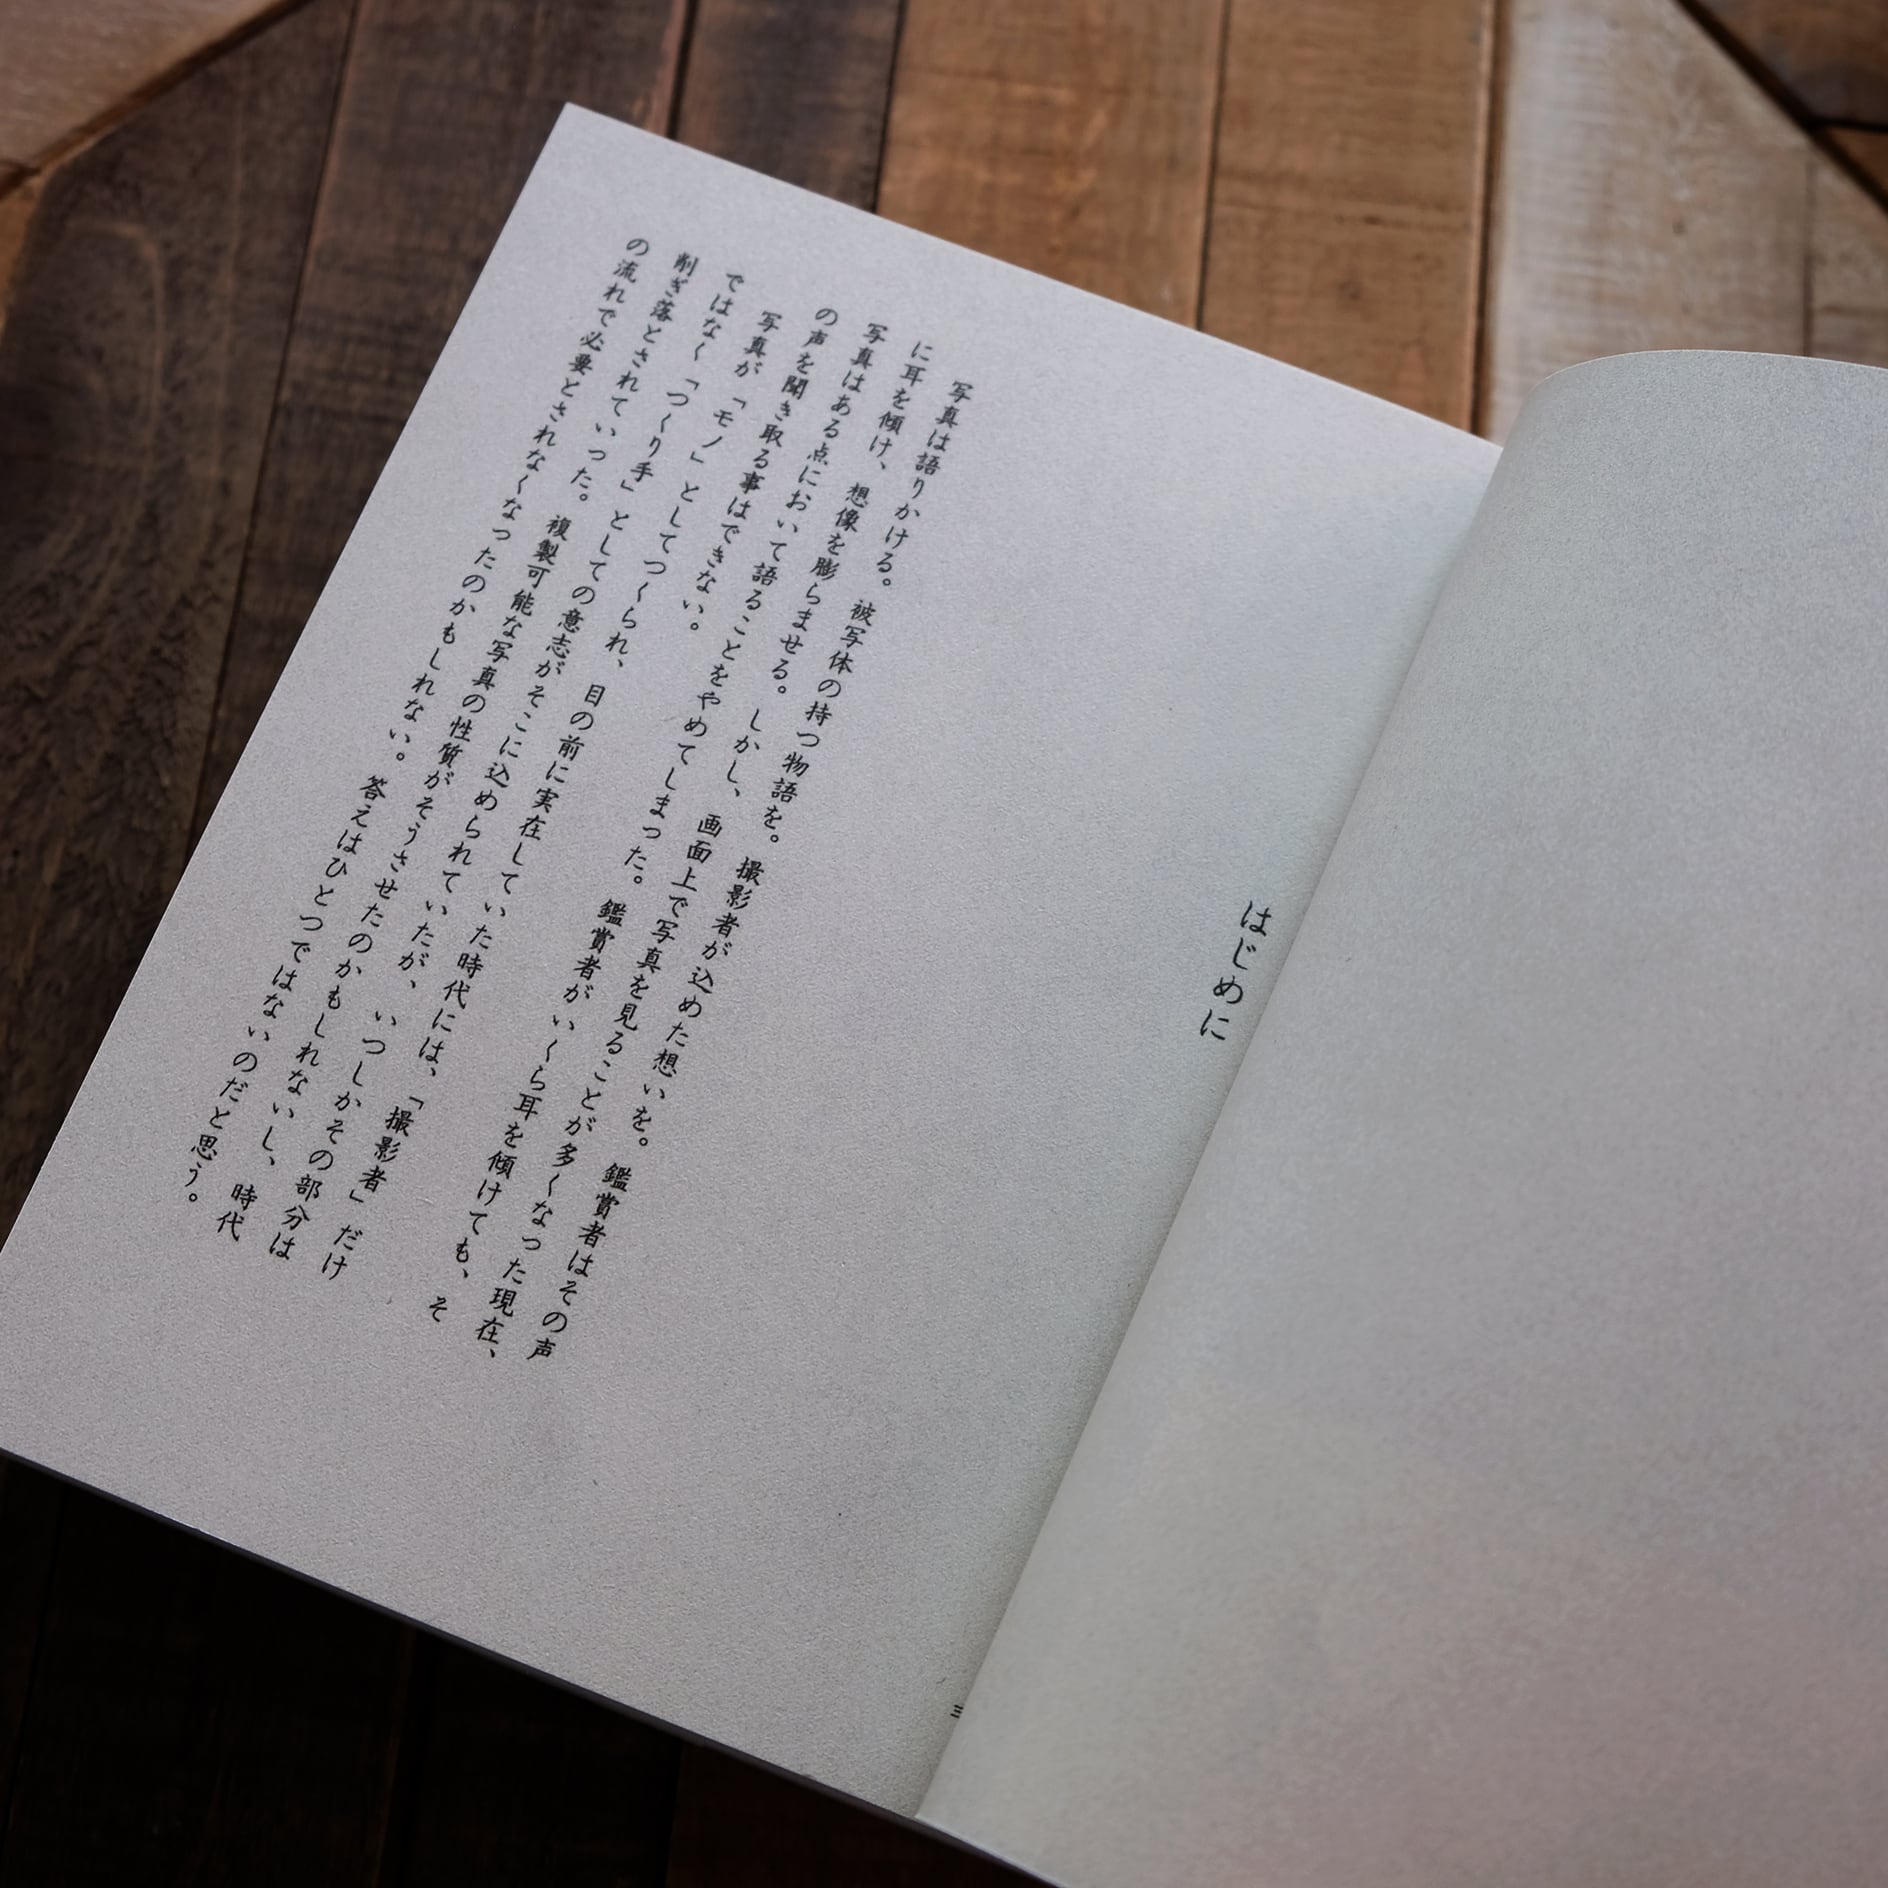 はじめに
写真は語りかける。被写体の持つ物語を。撮影者が込めた想いを。鑑賞者はその声
に耳を傾け、想像を膨らませる。しかし、画面上で写真を見ることが多くなった現在、
写真はある点において語ることをやめてしまった。鑑賞者がいくら耳を傾けても、そ
の声を聞き取る事はできない。
写真が「モノ」としてつくられ、目の前に実在していた時代には、「撮影者」だけ
ではなく「つくり手」としての意志がそこに込められていたが、いつしかその部分は
削ぎ落とされていった。複製可能な写真の性質がそうさせたのかもしれないし、時代
の流れで必要とされなくなったのかもしれない。答えはひとつではないのだと思う。
三